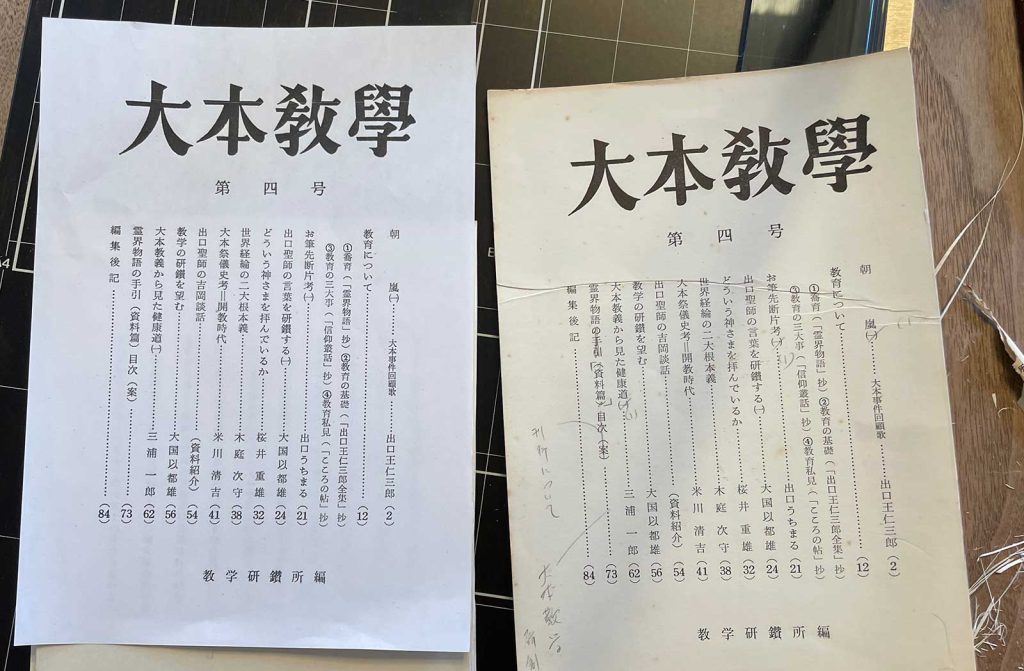 大本教學
第四号
朝嵐㈠ 大本事件回顧歌………出口王仁三郎(2)
教育について………(12)
①喬育(「霊界物語」抄) ②教育の基礎(「出口王仁三郎全集」抄)
③教育の三大事(「信仰叢話」抄) ④教育私見(「こころの帖」抄)
お筆先断片考㈠………出口うちまる(21)
出口聖師の言葉を研鑽する㈠………大国以都雄(24)
どういう神さまを拝んでいるか………桜井重雄(32)
世界経綸の二大根本義………木庭次守(38)
大本祭儀史考=開教時代………米川清吉(41)
出口聖師の吉岡談話………(資料紹介)(54)
教学の研鑽を望む………大国以都雄(56)
大本教義から見た健康道㈠………三浦一郎(62)
霊界物語の手引(資料篇)目次(案)………(73)
編集後記………(84)
教学研鑽所編
大本教學
第四号
朝嵐㈠ 大本事件回顧歌………出口王仁三郎(2)
教育について………(12)
①喬育(「霊界物語」抄) ②教育の基礎(「出口王仁三郎全集」抄)
③教育の三大事(「信仰叢話」抄) ④教育私見(「こころの帖」抄)
お筆先断片考㈠………出口うちまる(21)
出口聖師の言葉を研鑽する㈠………大国以都雄(24)
どういう神さまを拝んでいるか………桜井重雄(32)
世界経綸の二大根本義………木庭次守(38)
大本祭儀史考=開教時代………米川清吉(41)
出口聖師の吉岡談話………(資料紹介)(54)
教学の研鑽を望む………大国以都雄(56)
大本教義から見た健康道㈠………三浦一郎(62)
霊界物語の手引(資料篇)目次(案)………(73)
編集後記………(84)
教学研鑽所編
について
大本教学